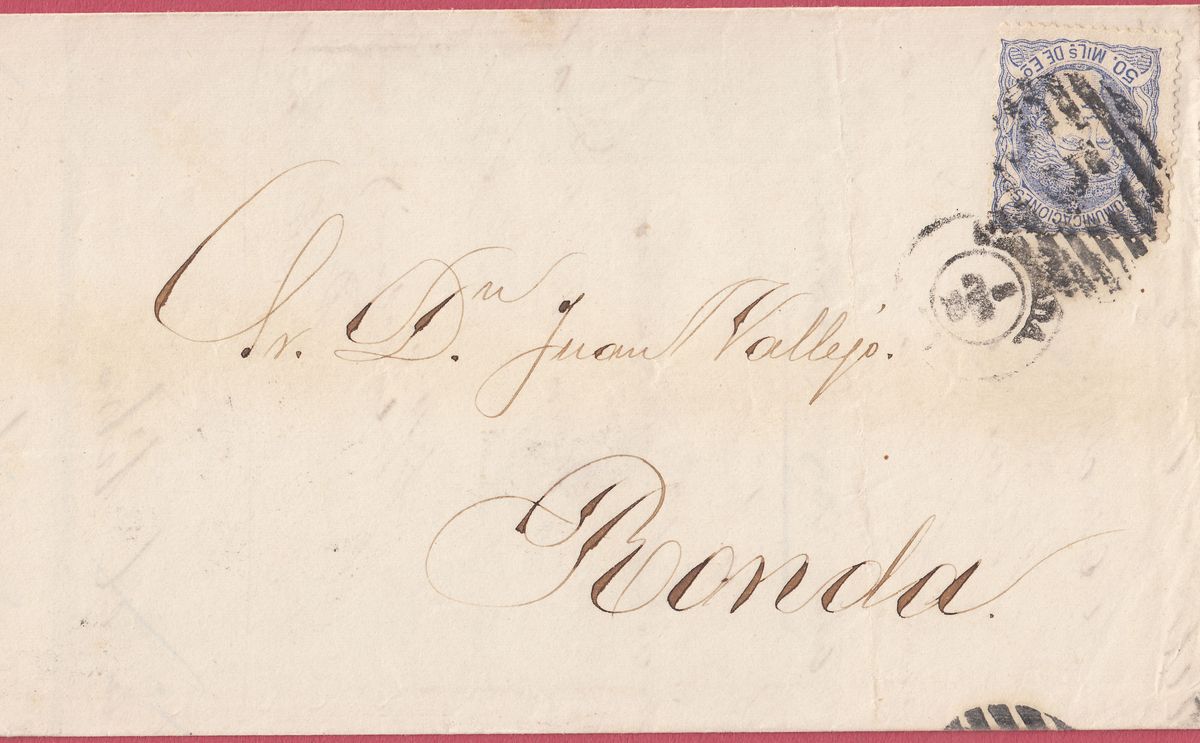 50. MILS DE Eo
COMUNICACIONES
Sr. Dn. Juan Vallejo.
Ronda.